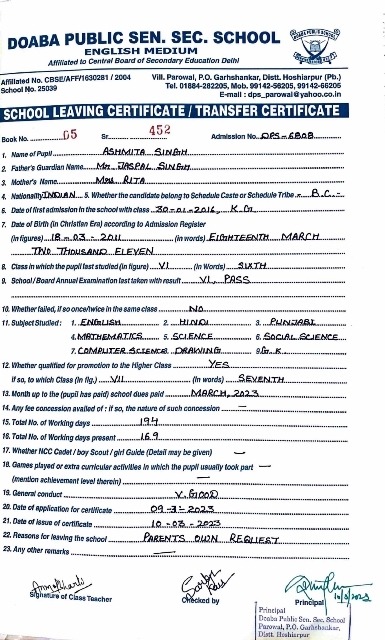 DOABA PUBLIC SEN. SEC. SCHOOL
ENGLISH MEDIUM
Affiliated to Central Board of Secondary Education Delhi
Affiliated No. CBSE/AFF/1630281 / 2004
School No. 25039
Vill. Parowal, P.O. Garhshankar, Distt. Hoshiarpur (Pb.)
Tel. 01884-282205, Mob. 99142-56205, 99142-66205
E-mail : dps_parowal@yahoo.co.in
SCHOOL LEAVING CERTIFICATE / TRANSFER CERTIFICATE
Book No. 05 Sr. 452 Admission No. DPS-6808
1. Name of Pupil ASHMITA SINGH
2. Father's Guardian Name Mr. JASPAL SINGH
3. Mother's Name Mrs. RITA
4. Nationality INDIAN 5. Whether the candidate belong to Schedule Caste or Schedule Tribe - B.C.-
6. Date of first admission in the school with class 30-01-2016, K.G
7. Date of Birth (in Christian Era) according to Admission Register
(in figures) 18-03-2011 (in words) EIGHTEENTH MARCH
TWO THOUSAND ELEVEN
8. Class in which the pupil last studied (in figure) VI (in Words) SIXTH
9. School / Board Annual Examination last taken with result VI, PASS
10. Whether failed, if so once/twice in the same class NO
11. Subject Studied : 1. ENGLISH 2. HINDI 3. PUNJABI
4. MATHEMATICS 5. SCIENCE 6. SOCIAL SCIENCE
7. COMPUTER SCIENCE 8. DRAWING 9. G.K
12. Whether qualified for promotion to the Higher Class YES
if so, to which Class (in fig.) VII (in words) SEVENTH
13. Month up to the (pupil has paid) school dues paid MARCH, 2023
14. Any fee concession availed of : if so, the nature of such concession —
15. Total No. of Working days 194
16. Total No. of Working days present 169
17. Whether NCC Cadet / boy Scout / girl Guide (Detail may be given) —
18. Games played or extra curricular activities in which the pupil usually took part —
(mention achievement level therein) —
19. General conduct V. GOOD
20. Date of application for certificate 09-3-2023
21. Date of issue of certificate 10-03-2023
22. Reasons for leaving the school PARENTS OWN REQUEST
23. Any other remarks —
Signature of Class Teacher
Checked by
Principal 10/3/2023
Principal
Doaba Public Sen. Sec. School
Parowal, P.O. Garhshankar,
Distt. Hoshiarpur